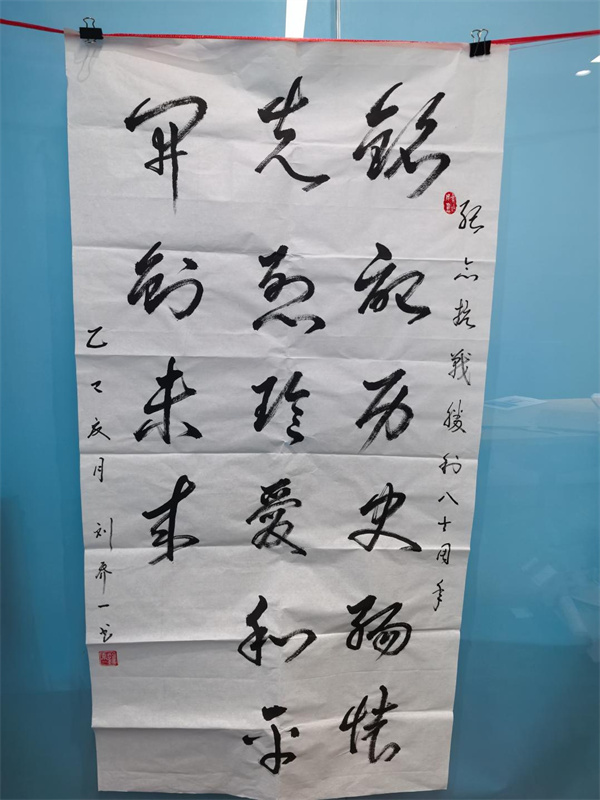 纪念抗戰勝利八十周年
铭记历史缅怀
先烈珍愛和平
开创未来
乙巳夏月 刘 一书